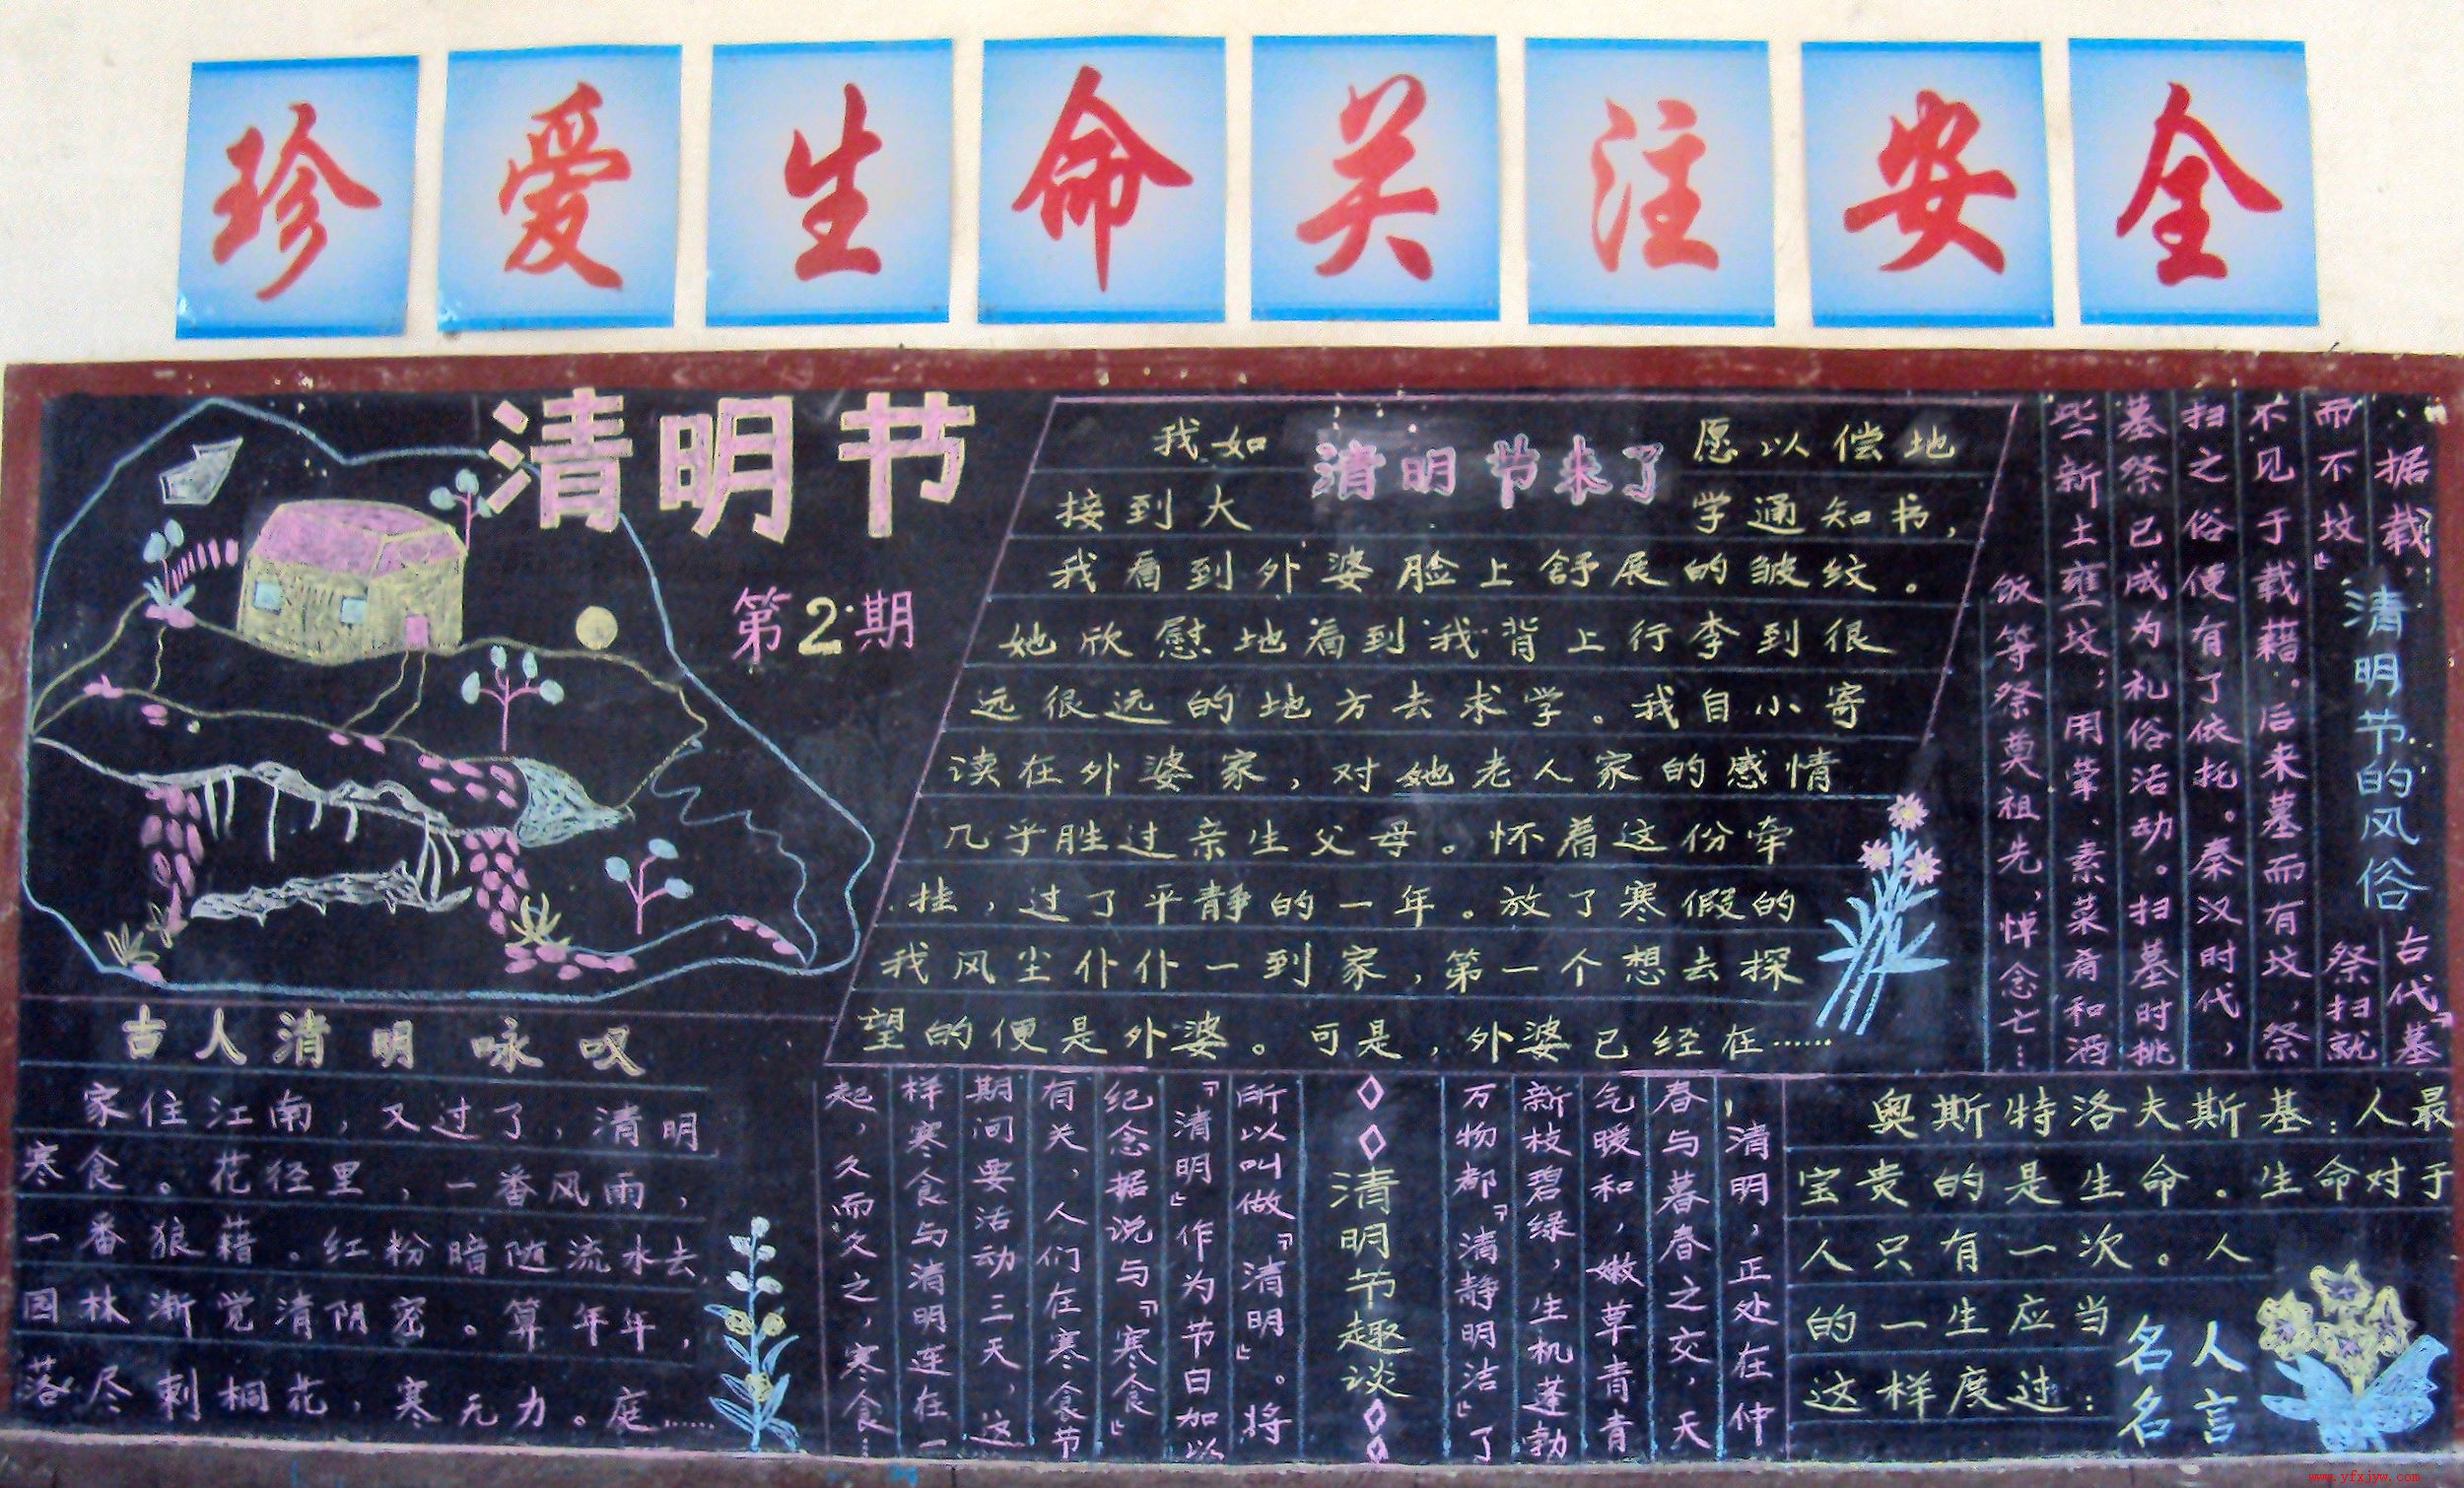 珍爱生命关注安全
清明节
第2期
清明节来了
我如愿以偿地
接到大学通知书，
我看到外婆脸上舒展的皱纹。
她欣慰地看到我背上行李到很
远很远的地方去求学。我自小寄
读在外婆家，对她老人家的感情
几乎胜过亲生父母。怀着这份牵
挂，过了平静的一年。放了寒假的
我风尘仆仆一到家，第一个想去探
望的便是外婆。可是，外婆已经在……
清明节的风俗
据载，古代『墓
而不坟』祭扫就
不见于载藉。后来墓而有坟，祭
扫之俗便有了依托。秦汉时代，
墓祭已成为礼俗活动。扫墓时挑
些新土壅坟；用荤、素菜肴和酒
饭等祭奠祖先，悼念亡…
古人清明咏叹
家住江南，又过了，清明
寒食。花径里，一番风雨，
一番狼藉。红粉暗随流水去，
园林渐觉清阴密。算年年，
落尽刺桐花，寒无力。庭……
清明节趣谈
清明，正处在仲
春与暮春之交，天
气暖和，嫩草青青
新枝碧绿，生机蓬勃
万物都『清静明洁』了
所以叫做『清明』。将
『清明』作为节日加以
纪念据说与『寒食』
有关，人们在寒食节
期间要活动三天，这
样寒食与清明连在一
起，久而久之，寒食…
奥斯特洛夫斯基：人最
宝贵的是生命。生命对于
人只有一次。人
的一生应当
这样度过：
名人
名言
www.yfxjyw.com